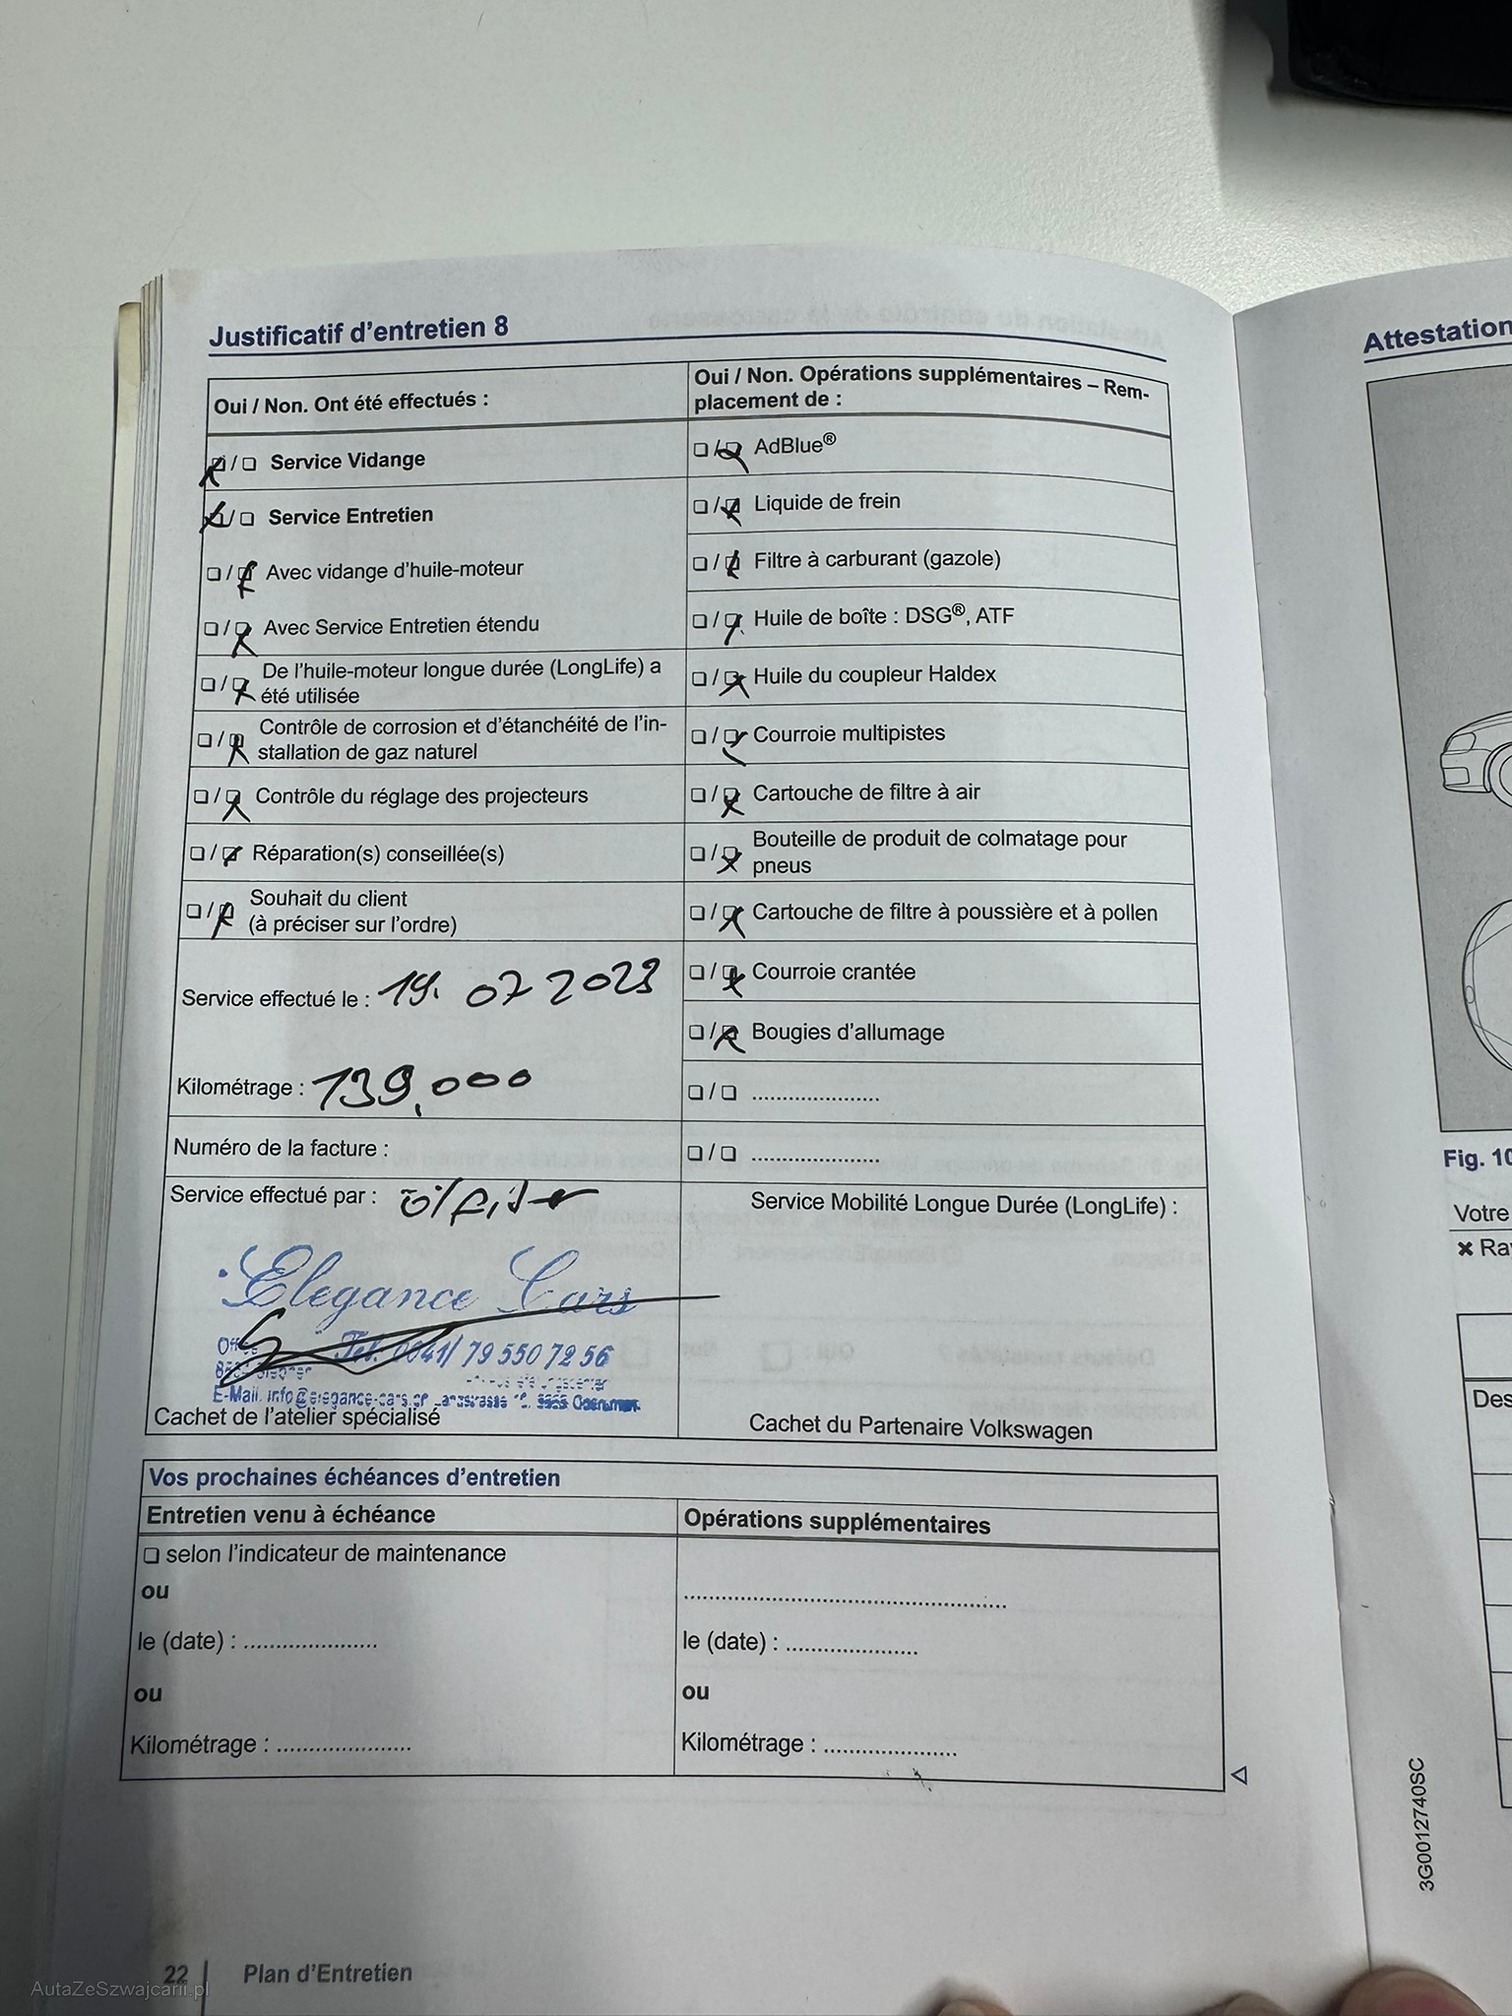 Justificatif d'entretien 8
Oui / Non. Ont été effectués :
❏ / ❏ Service Vidange
❏ / ❏ Service Entretien
❏ / ❏ Avec vidange d'huile-moteur
❏ / ❏ Avec Service Entretien étendu
❏ / ❏ De l'huile-moteur longue durée (LongLife) a
été utilisée
❏ / ❏ Contrôle de corrosion et d'étanchéité de l'in-
stallation de gaz naturel
❏ / ❏ Contrôle du réglage des projecteurs
❏ / ❏ Réparation(s) conseillée(s)
❏ / ❏ Souhait du client
(à préciser sur l'ordre)
Service effectué le : 19. 07 2023
Kilométrage : 139.000
Numéro de la facture :
Service effectué par :
Elegance Cars
Tel. 0041/ 79 550 72 56
E-Mail. info@elegance-cars.ch
Cachet de l'atelier spécialisé
Oui / Non. Opérations supplémentaires – Rem-
placement de :
❏ / ❏ AdBlue®
❏ / ❏ Liquide de frein
❏ / ❏ Filtre à carburant (gazole)
❏ / ❏ Huile de boîte : DSG®, ATF
❏ / ❏ Huile du coupleur Haldex
❏ / ❏ Courroie multipistes
❏ / ❏ Cartouche de filtre à air
❏ / ❏ Bouteille de produit de colmatage pour
pneus
❏ / ❏ Cartouche de filtre à poussière et à pollen
❏ / ❏ Courroie crantée
❏ / ❏ Bougies d'allumage
❏ / ❏ .....................
❏ / ❏ .....................
Service Mobilité Longue Durée (LongLife) :
Cachet du Partenaire Volkswagen
Vos prochaines échéances d'entretien
Entretien venu à échéance
❏ selon l'indicateur de maintenance
ou
le (date) : ......................
ou
Kilométrage : ......................
Opérations supplémentaires
......................................................
le (date) : ......................
ou
Kilométrage : ......................
22 Plan d'Entretien
Attestation
Fig. 10
Votre
✖ Ra
Des
3G0012740SC
AutaZeSzwajcarii.pl